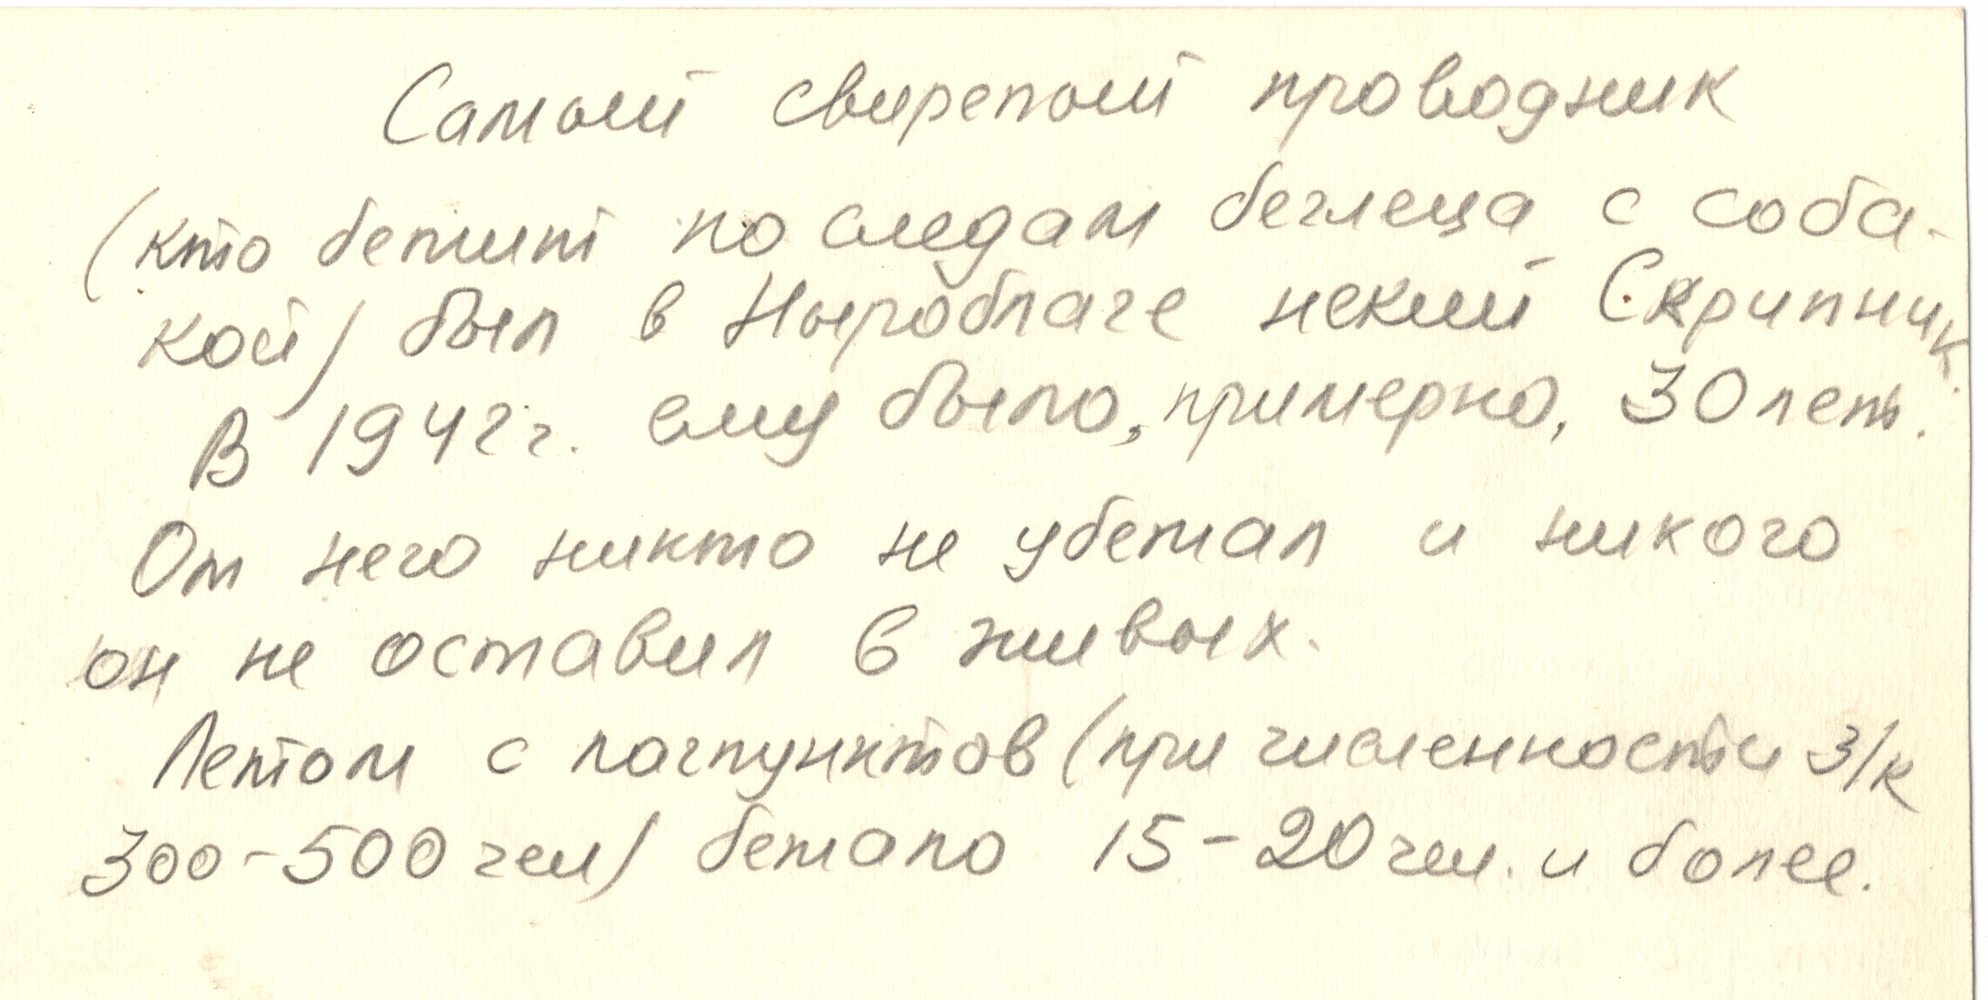 Самый свирепый проводник
(кто бежит по следам беглеца с соба-
кой) был в Ныроблаге некий Скрипник.
В 1942 г. ему было, примерно, 30 лет.
От него никто не убежал и никого
он не оставил в живых.
Летом с лагпунктов (при численности з/к
300-500 чел) бежало 15-20 чел. и более.